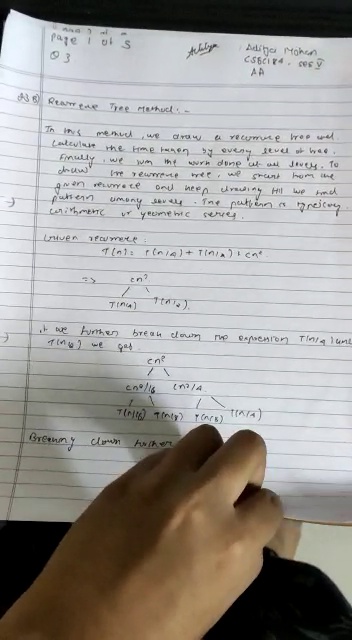 Page 1 of 5
Aditya Mohan
Q 3
CSE
AA
Recurrence Tree Method : -
In this method, we draw a recurrence tree and
calculate the time taken by every level of tree.
Finally, we sum the work done at all levels. To
draw the recurrence tree, we start from the
given recurrence and keep drawing till we find
pattern among levels. The pattern is typically
arithmetic or geometric series.
Given recurrence :
T(n) = T(n/4) + T(n/2) + cn²
=> cn²
T(n/4) T(n/2).
if we further break down the expression T(n/4) and
T(n/2) we get.
cn²
cn²/16 cn²/4
T(n/16) T(n/8) T(n/8) T(n/4)
Breaking down further